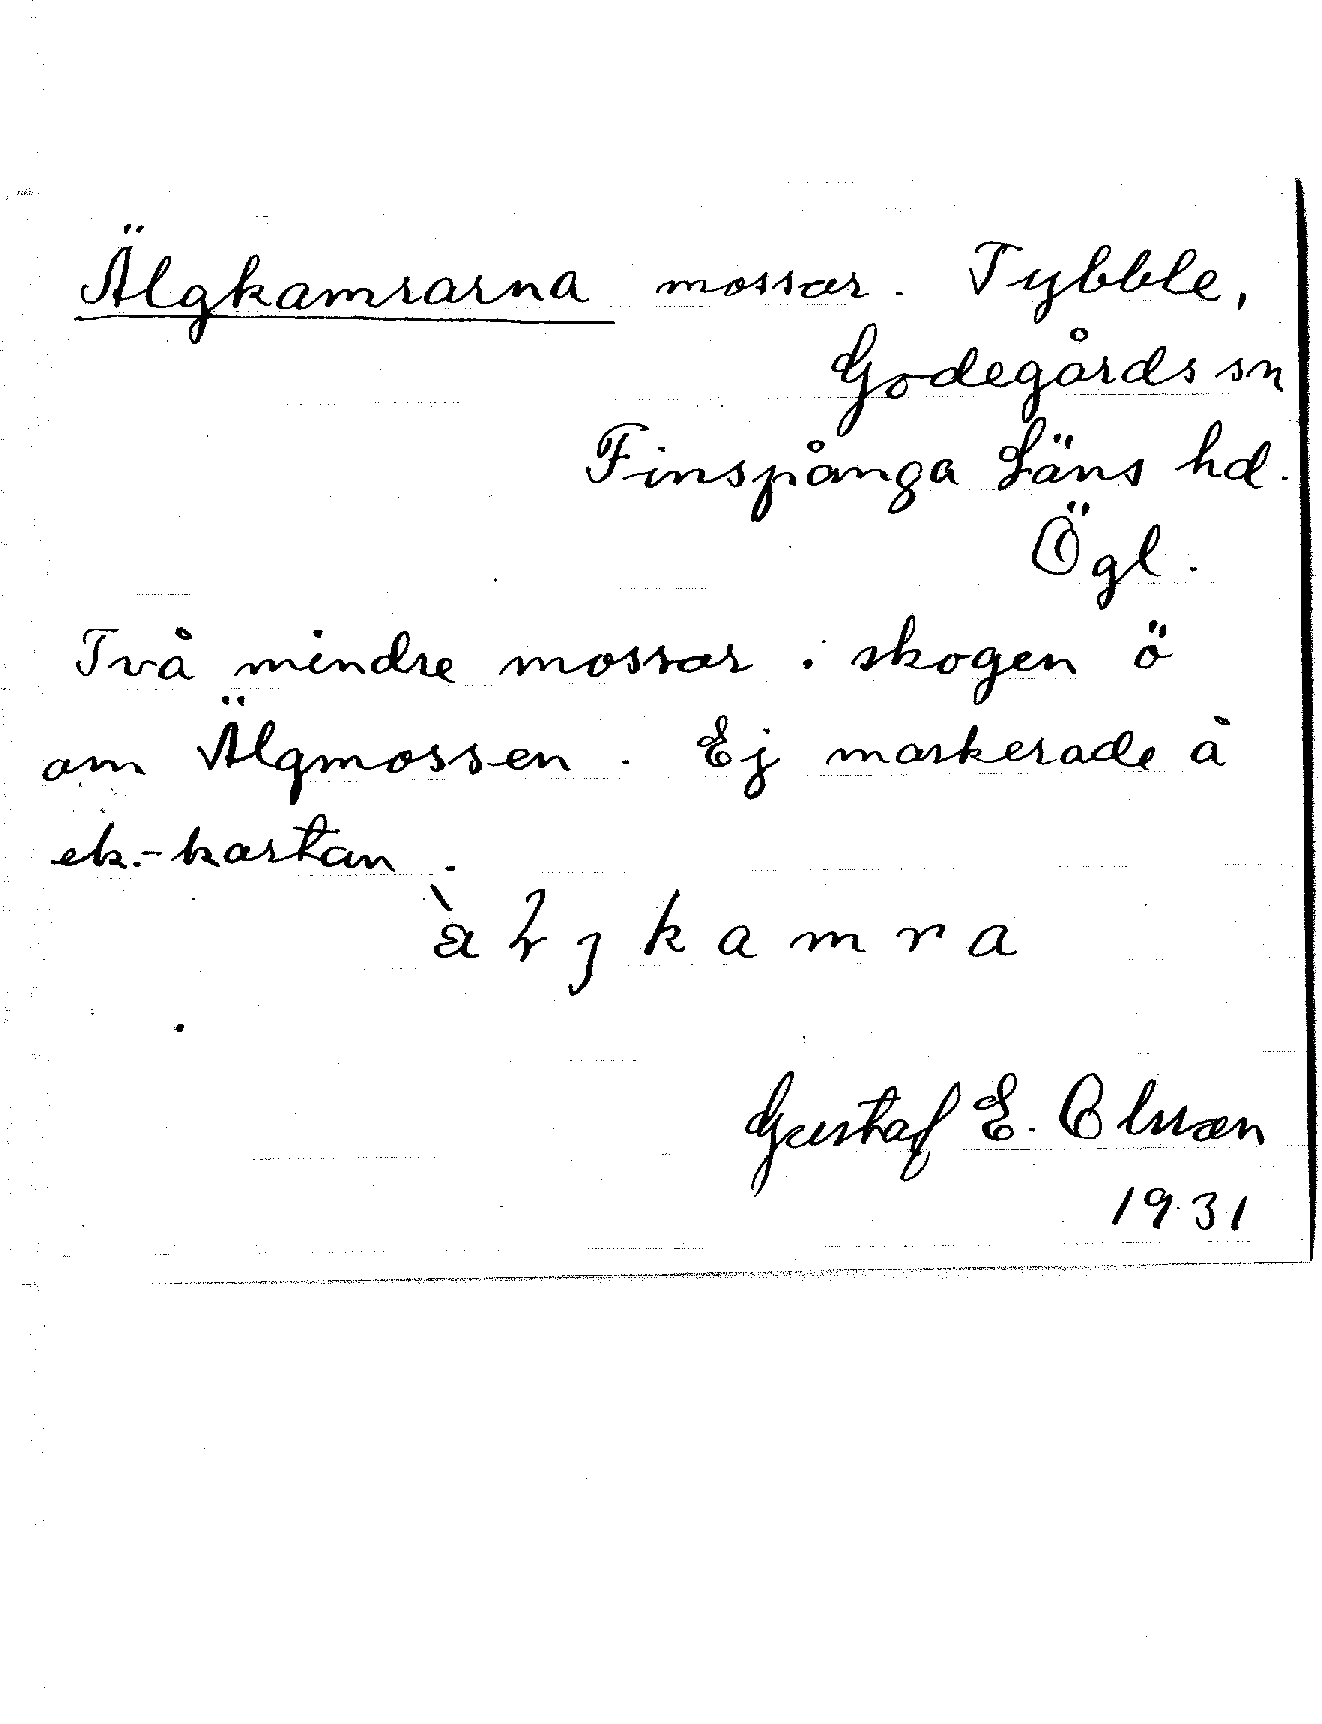 Älgkamrarna mossar. Tybble,
Godegårds sn
Finspånga Läns hd.
Ögl.
Två mindre mossar i skogen ö
om Älgmossen. Ej markerade å
ek.-kartan.
Gustaf E. Olsson
1931